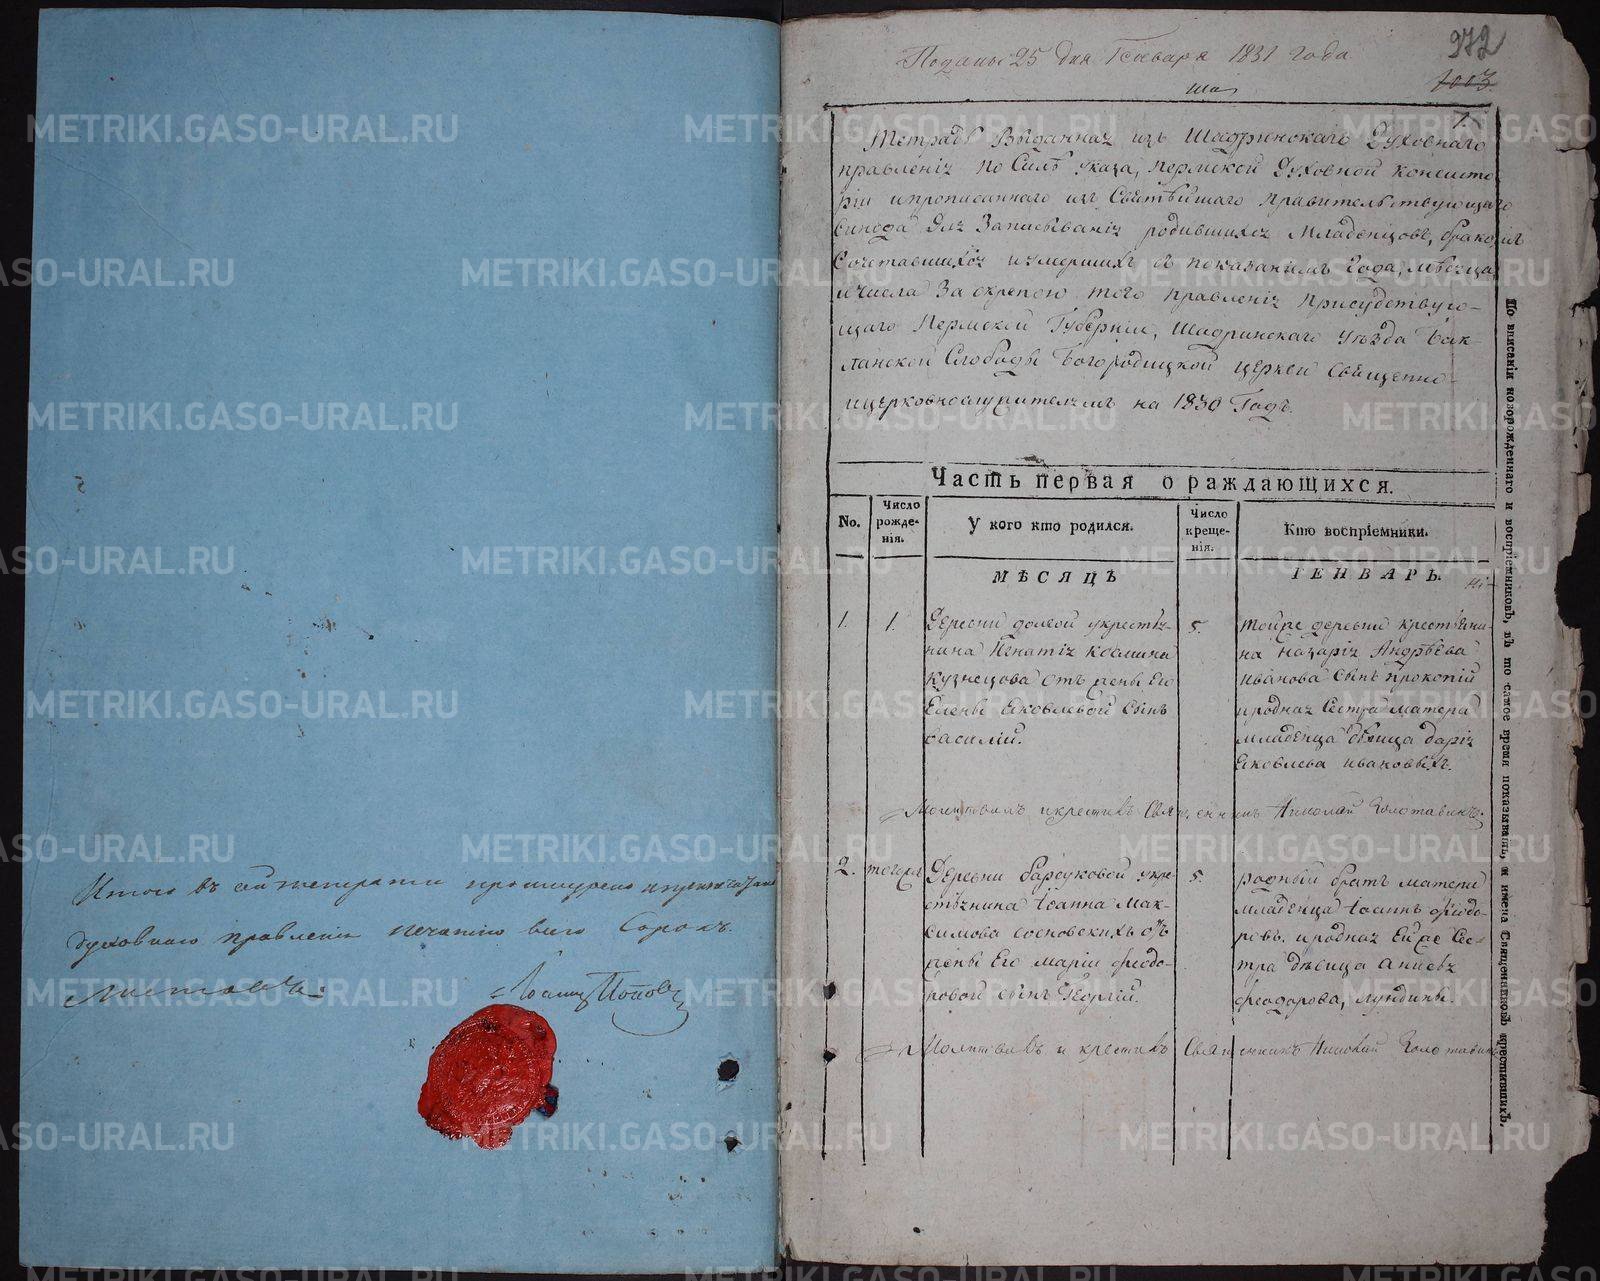 Итого въ сей тетрати прошнурено и
духовнаго правленія печатію всего Сорокъ
листовъ.
Іоаннъ Поповъ
Поданы 25 дня Генваря 1831 года
972
1003
1.
Тетрадь Выданная изъ Шадринскаго Духовнаго
правленія по Силѣ указа, Пермской Духовной Консисто
ріи и прописаннаго изъ Святѣйшаго Правительствующаго
Синода Для Записыванія родившихся Младенцовъ, бракомъ
Сочетавшихся и умершихъ съ показаніемъ Года, мѣсяца,
и числа За скрепою того правленія присудствую-
щаго Пермской Губерніи, Шадринскаго уѣзда Бак-
ланской Слободы Богородицкой церкви священно-
и церковнослужителямъ на 1830 Годъ.
Часть первая о раждающихся.
No.
Число рожде-нія.
У кого кто родился.
Число креще-нія.
Кто воспріемники.
МѢСЯЦЪ ГЕНВАРЬ.
1.
1.
Деревни долгой у крестья-
нина Игнатія Козмина
Кузнецова отъ жены Его
Елены Яковлевой Сынъ
Василій.
5.
тойже деревни крестьяни-
на Назарія Андрѣева
Иванова Сынъ прокопій
и родная Сестра матери
младенца дѣвица дарія
Яковлева ивановыхъ.
Молитвилъ и крестилъ Священникъ Николай Золотавинъ.
2.
тогожъ
Деревни барсуковой у кре-
стьянина Іоанна Мак-
симова сосновскихъ отъ
жены Его Маріи Феодо-
ровой сынъ Георгій.
5.
родный братъ матери
младенца Іоаннъ Феодо-
ровъ. и родная Ей же Сес-
тра дѣвица
феодорова, лундины.
Молитвилъ и крестилъ Священникъ Николай Золотавинъ
По вписаніи новорожденнаго и воспріемниковъ, въ то самое время показывать, и имена Священниковъ крестившихъ.
METRIKI.GASO-URAL.RU